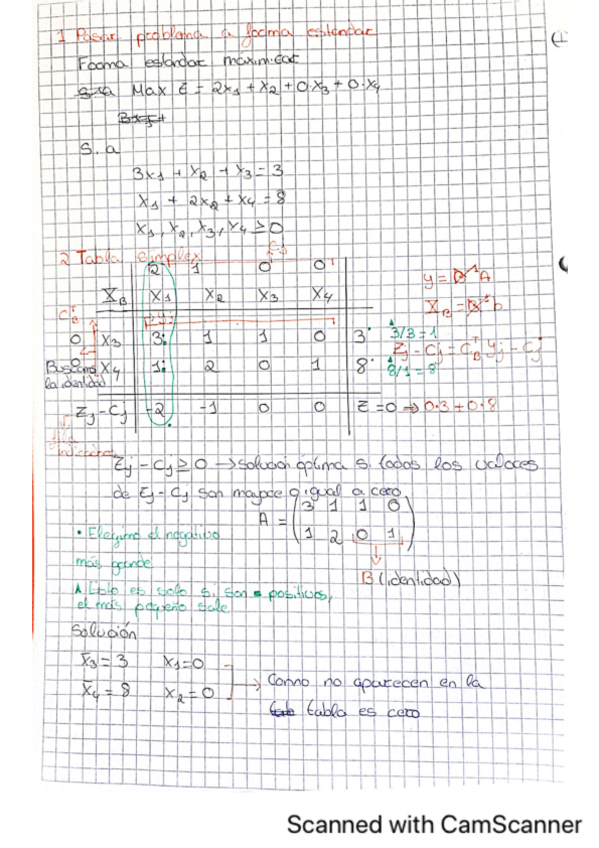 1 Pasar problema a forma estándar
(1
Forma estandar maximizar
Max Z = 2x1 + x2 + 0·x3 + 0·x4
S. a
3x1 + x2 + x3 = 3
x1 + 2x2 + x4 = 8
x1, x2, x3, x4 ≥ 0
2 Tabla simplex
Cj
2 1 0 0
XB x1 x2 x3 x4
0 x3 3 1 1 0 3 3/3 = 1
x4 1 2 0 1 8 8/1 = 8
Buscamos la identidad
Zj - Cj -2 -1 0 0 Z = 0 ⇒ 0·3 + 0·8
y = B⁻¹A
XB = B⁻¹b
Zj - Cj = CBᵀ yj - Cj
Zj - Cj ≥ 0 → solución óptima si todos los valores
de Zj - Cj son mayor o igual a cero
A = (3 1 1 0
1 2 0 1)
B (identidad)
• Elegimos el negativo
más grande
Esto es solo si son positivos,
el más pequeño sale
Solución
x̄3 = 3 x1 = 0
x̄4 = 8 x2 = 0
→ Como no aparecen en la
tabla es cero
Scanned with CamScanner